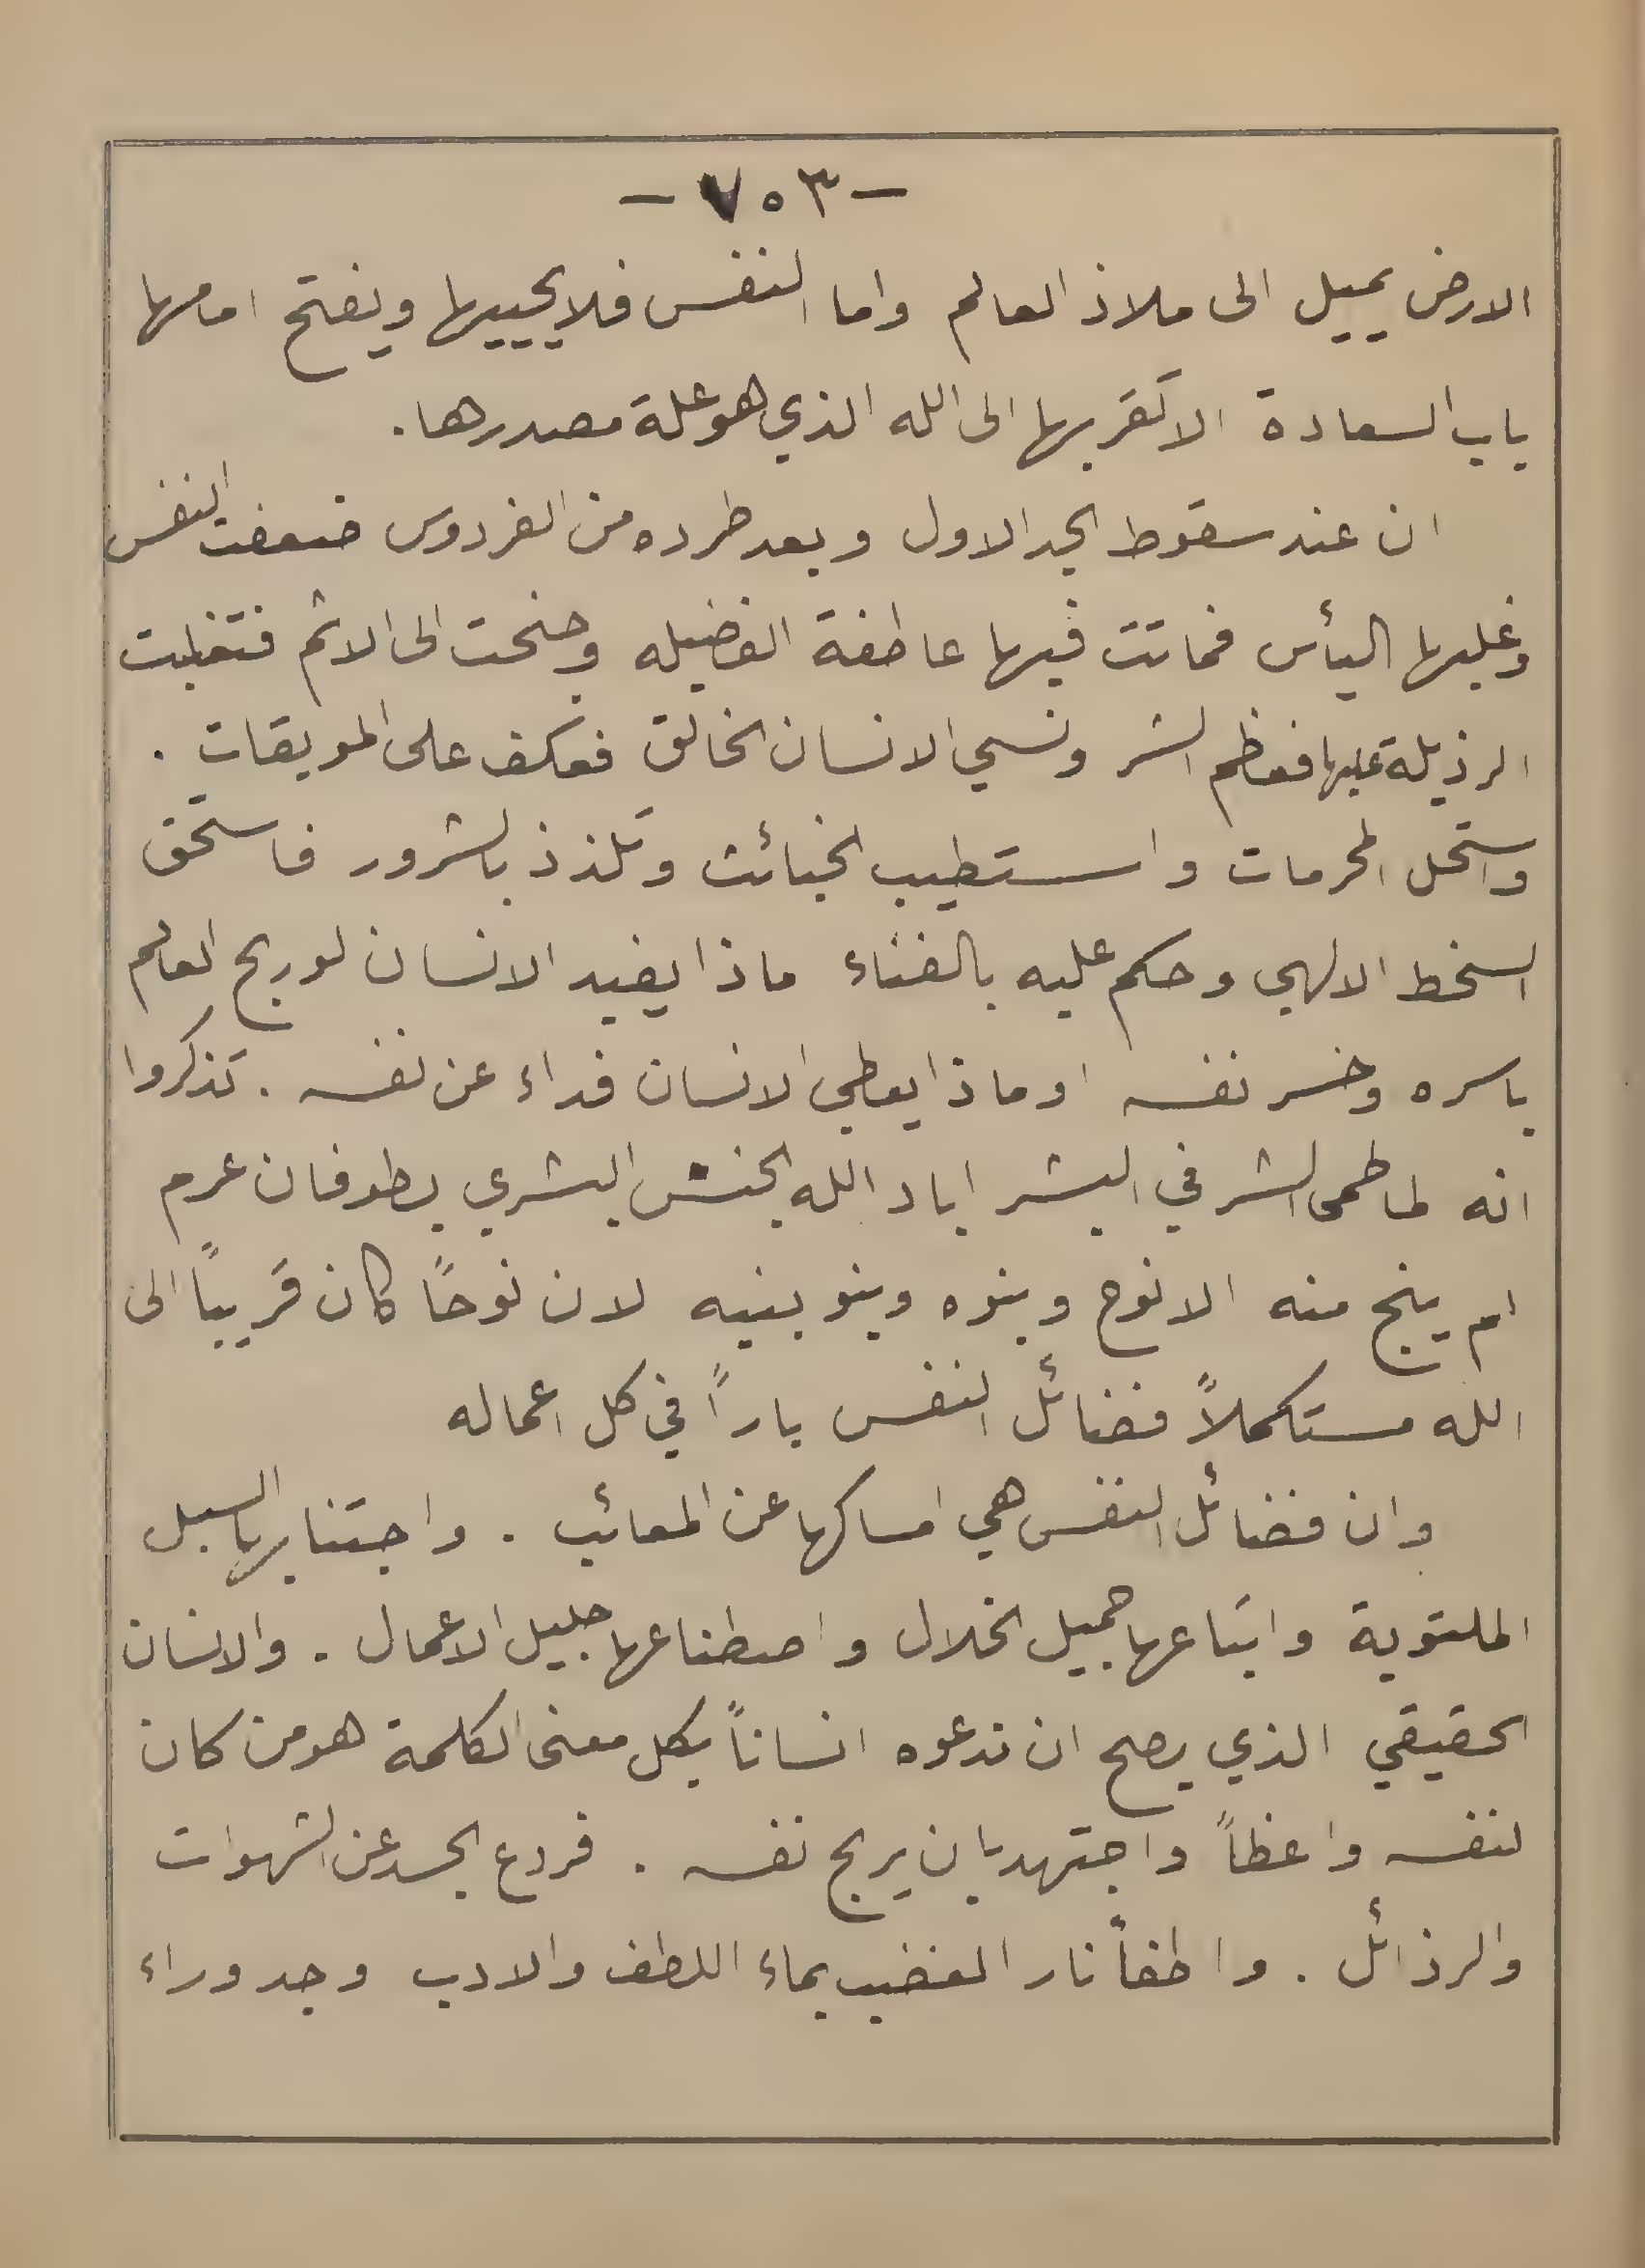 - ٧٥٣ -
الارض يميل الى ملاذ العالم واما النفس فلا يحييها ويفتح امامها
باب السعادة الا تقربها الى الله الذي هو علة مصدرها.
ان عند سقوط الجد الاول وبعد طرده من الفردوس ضعفت النفس
وغلبها اليأس فماتت فيها عاطفة الفضيله وجنحت الى الاثم فتغلبت
الرذيلة عليها فعظم الشر ونسي الانسان الخالق فعكف على الموبقات .
واستحل المحرمات واستطيب الخبائث وتلذذ بالشرور فاستحق
السخط الالهي وحكم عليه بالفناء ماذا يفيد الانسان لو ربح العالم
باسره وخسر نفسه او ماذا يعطي الانسان فداء عن نفسه . تذكروا
انه لما طمى الشر في البشر اباد الله الجنس البشري بطوفان عرم
لم ينج منه الا نوح وبنوه وبنو بنيه لان نوحًا كان قريبًا الى
الله مستكملاً فضائل النفس بارًا في كل اعماله
وان فضائل النفس هي امساكها عن المعائب . واجتنابها السبل
الملتوية واتباعها جميل الخلال واصطناعها جليل الاعمال . والانسان
الحقيقي الذي يصح ان ندعوه انسانًا بكل معنى الكلمة هو من كان
لنفسه واعظًا واجتهد بان يربح نفسه . فردع الجسد عن الشهوات
والرذائل . واطفأ نار الغضب بماء اللطف والادب وجد وراء